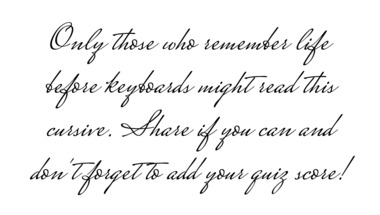 Only those who remember life
before keyboards might read this
cursive. Share if you can and
don't forget to add your quiz score!